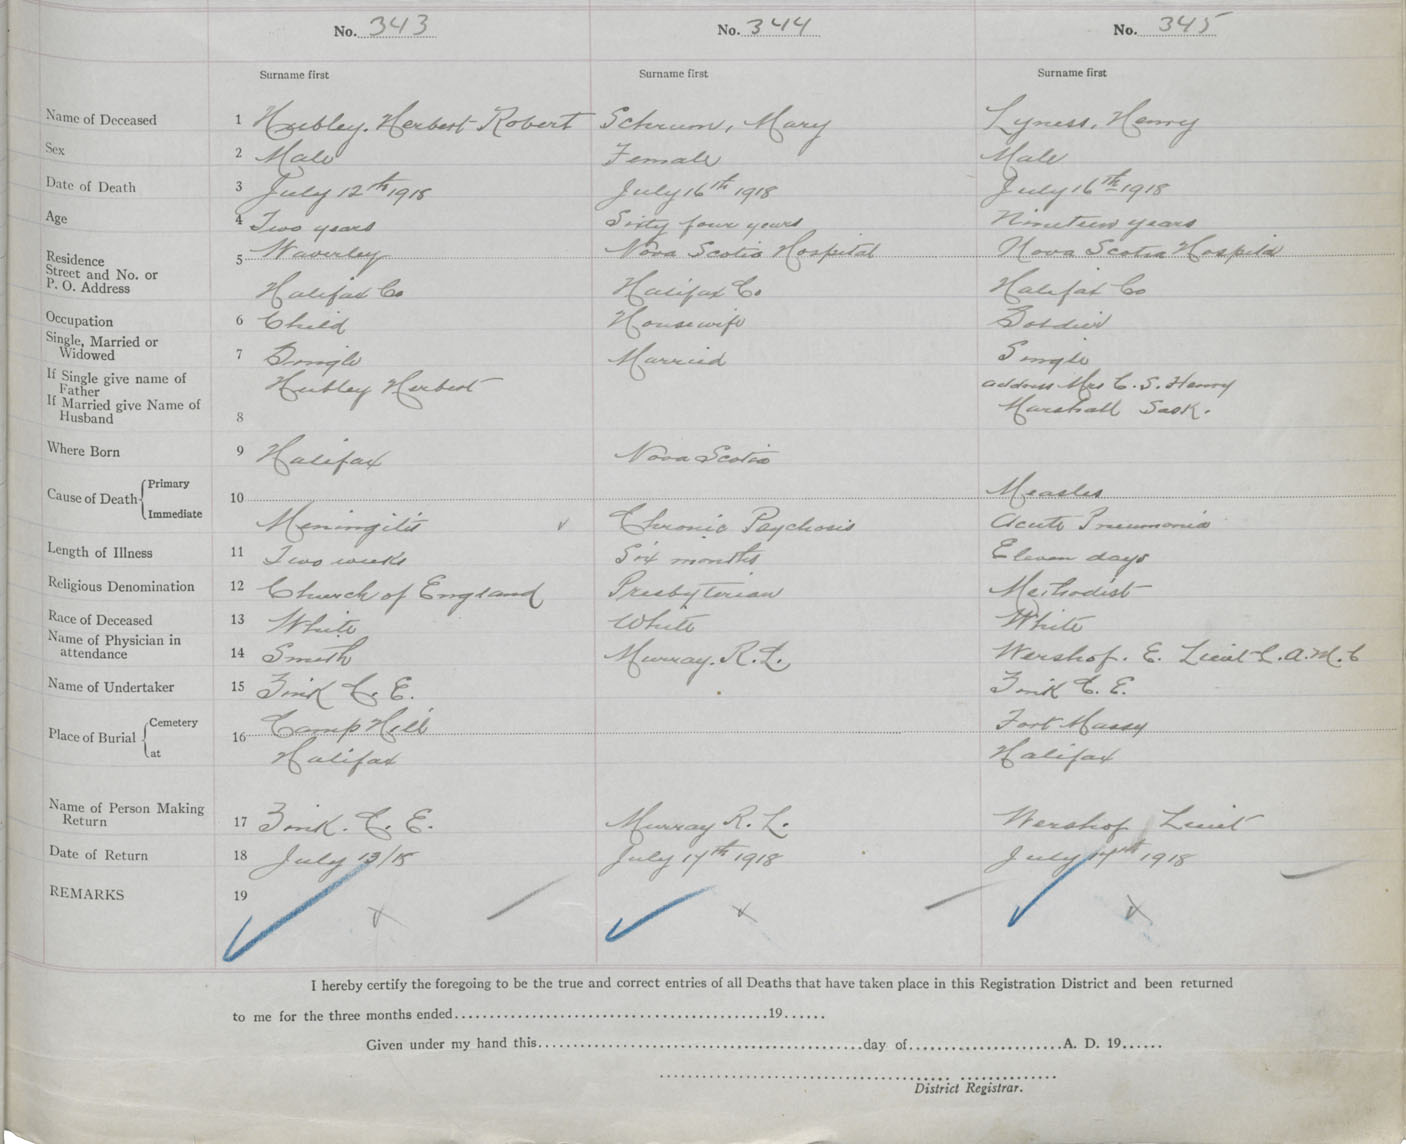 No. 343 No. 344 No. 345
Surname first Surname first Surname first
Name of Deceased 1 Hubley, Herbert Robert Schrum, Mary Lyness, Henry
Sex 2 Male Female Male
Date of Death 3 July 12th 1918 July 16th 1918 July 16th 1918
Age 4 Two years Sixty four years Nineteen years
Residence 5 Waverley Nova Scotia Hospital Nova Scotia Hospital
Street and No. or
P. O. Address Halifax Co Halifax Co. Halifax Co
Occupation 6 Child Housewife Soldier
Single, Married or
Widowed 7 Single Married Single
If Single give name of
Father Hubley Herbert address Mrs C. S. Henry
If Married give Name of
Husband 8 Marshall Sask.
Where Born 9 Halifax Nova Scotia
Cause of Death Primary 10 Measles
Immediate Meningitis Chronic Psychosis Acute Pneumonia
Length of Illness 11 Two weeks Six months Eleven days
Religious Denomination 12 Church of England Presbyterian Methodist
Race of Deceased 13 White White White
Name of Physician in
attendance 14 Smith Murray. R. L. Wershof. E. Lieut C.A.M.C
Name of Undertaker 15 Zink C. E. Zink C. E.
Place of Burial Cemetery 16 Camp Hill Fort Massy
at Halifax Halifax
Name of Person Making
Return 17 Zink. C. E. Murray R. L. Wershof Lieut
Date of Return 18 July 13/18 July 17th 1918 July 17th 1918
REMARKS 19
I hereby certify the foregoing to be the true and correct entries of all Deaths that have taken place in this Registration District and been returned
to me for the three months ended........................................19......
Given under my hand this........................................day of......................A. D. 19......
District Registrar.